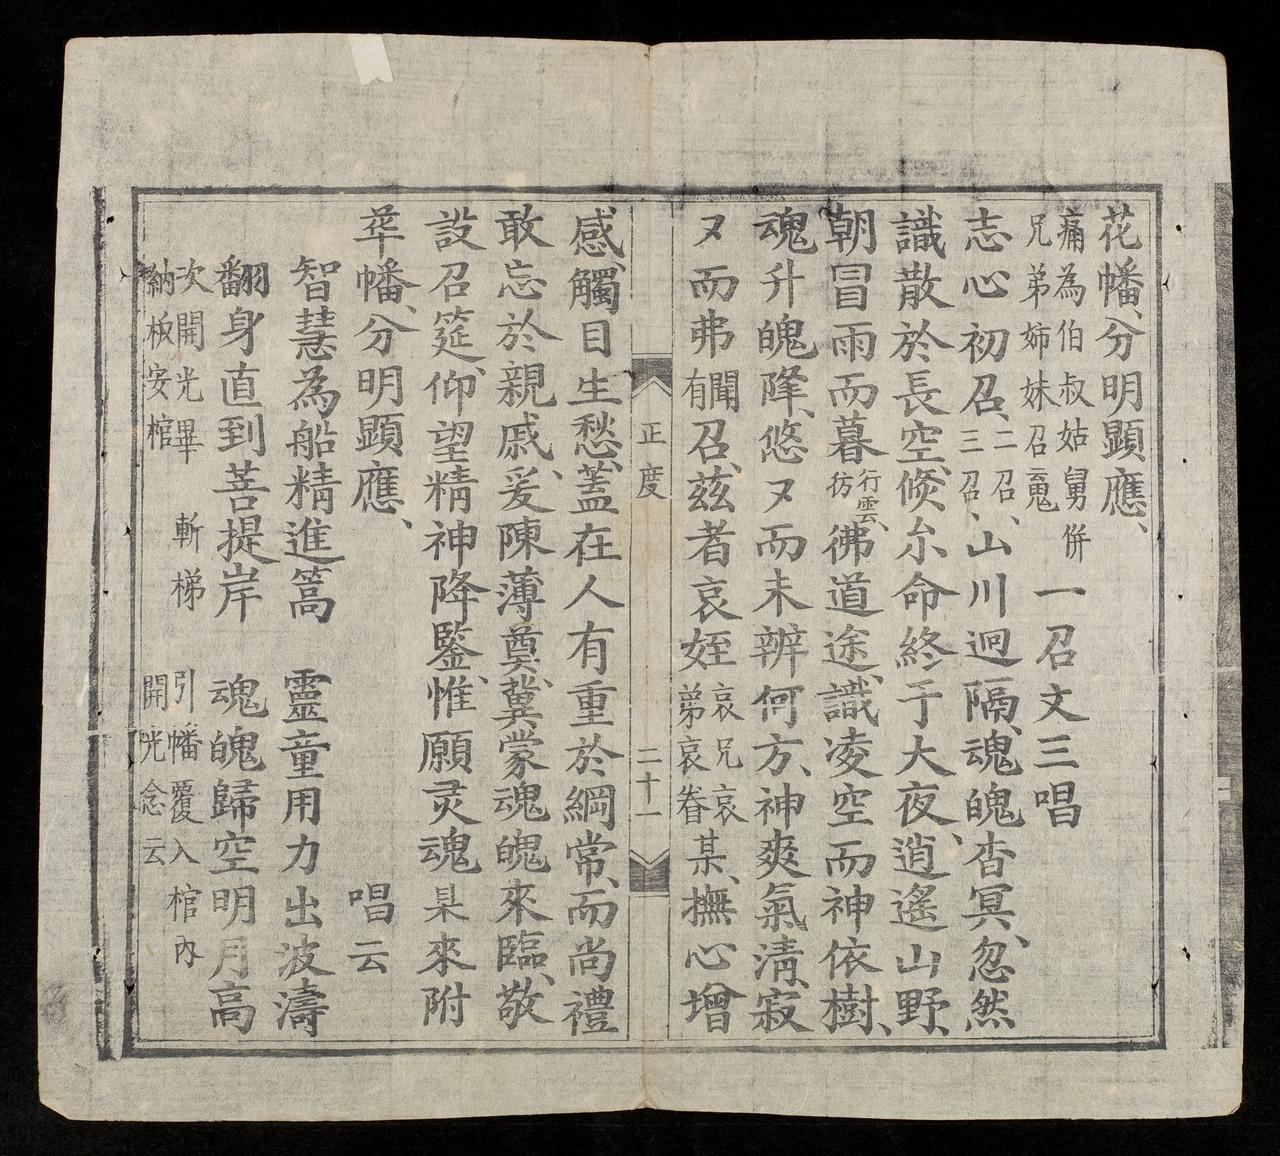 花幡、分明顯應、
痛為伯叔姑舅併
兄弟姉妹召䰟
一召文三唱
志心初召、二召、三召、山川迥隔、魂魄杳冥、忽然
識散於長空、倐尒命終于大夜、逍遙山野、
朝冒雨而暮行雲、彷彿道途、識凌空而神依樹、
魂升魄降、悠〻而未辨何方、神爽氣清、寂
〻而弗聞有召、兹者哀姪哀兄哀弟哀眷某、撫心增
正度
二十一
感、觸目生愁、蓋在人有重於綱常、而尚禮
敢忘於親戚、爰陳薄奠、冀蒙魂魄來臨、敬
設召筵、仰望精神降鑒、惟願灵魂杲來附
華幡、分明顯應、
唱云
智慧為船精進篙 靈童用力出波濤
翻身直到菩提岸 魂魄歸空明月高
次開光畢 斬梯 引幡覆入棺內
納板安棺 開光念云